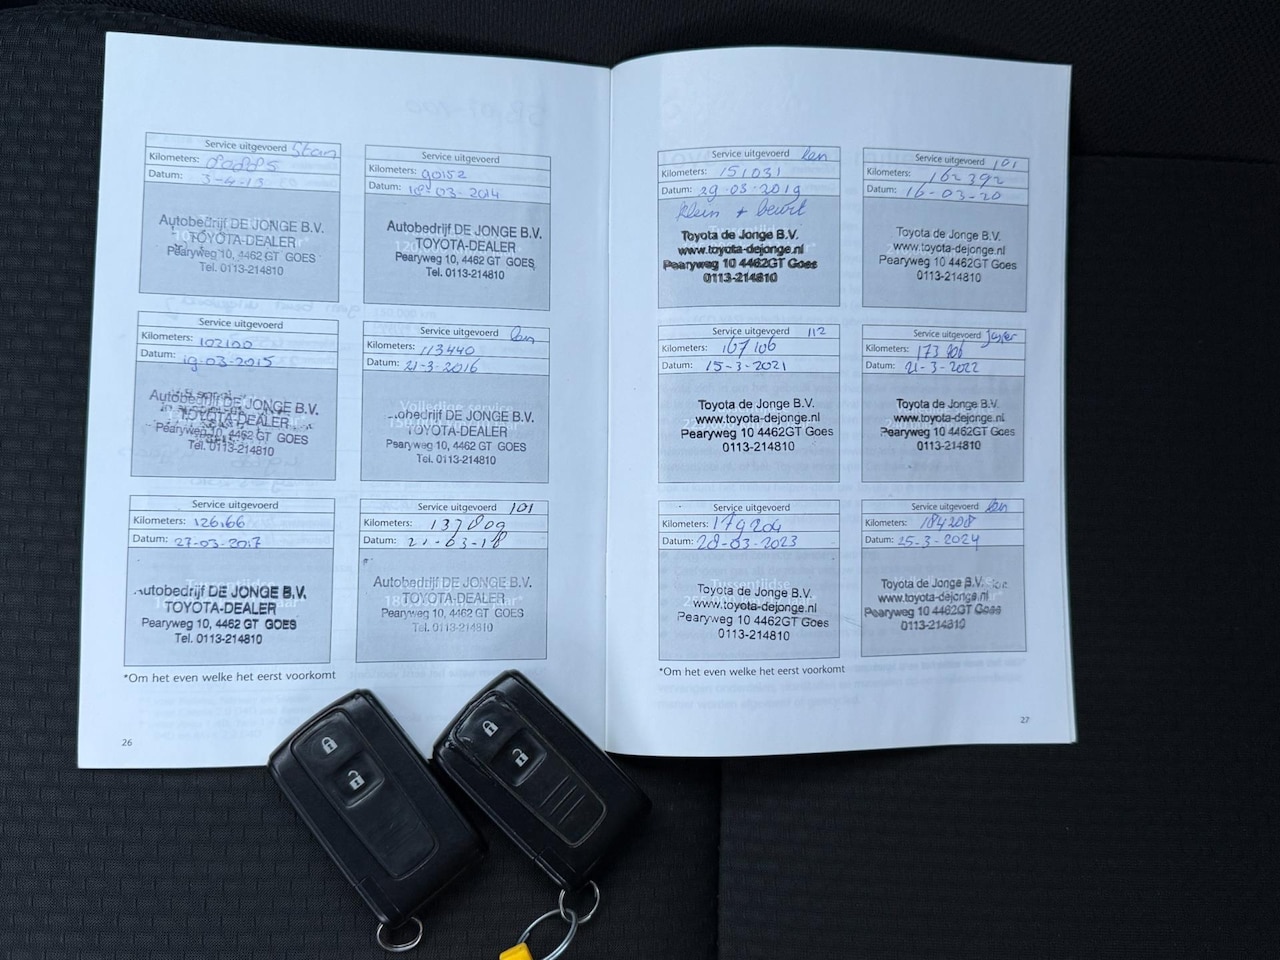 Service uitgevoerd Stan
Kilometers:
Datum: 3-4-13
Autobedrijf DE JONGE B.V.
TOYOTA-DEALER
Pearyweg 10, 4462 GT GOES
Tel. 0113-214810
Service uitgevoerd
Kilometers: 90152
Datum: 18-03-2014
Autobedrijf DE JONGE B.V.
TOYOTA-DEALER
Pearyweg 10, 4462 GT GOES
Tel. 0113-214810
Service uitgevoerd
Kilometers: 102100
Datum: 19-03-2015
Autobedrijf DE JONGE B.V.
TOYOTA-DEALER
Pearyweg 10, 4462 GT GOES
Tel. 0113-214810
Service uitgevoerd
Kilometers: 113440
Datum: 21-3-2016
Volledige service
obedrijf DE JONGE B.V.
TOYOTA-DEALER
Pearyweg 10, 4462 GT GOES
Tel. 0113-214810
Service uitgevoerd
Kilometers: 126166
Datum: 27-03-2017
Tussentijdse
utobedrijf DE JONGE B.V.
TOYOTA-DEALER
Pearyweg 10, 4462 GT GOES
Tel. 0113-214810
Service uitgevoerd 101
Kilometers: 137809
Datum: 21-03-18
Autobedrijf DE JONGE B.V.
TOYOTA-DEALER
Pearyweg 10, 4462 GT GOES
Tel. 0113-214810
*Om het even welke het eerst voorkomt
26
Service uitgevoerd
Kilometers: 151031
Datum: 29-03-2019
klein + beurt
Toyota de Jonge B.V.
www.toyota-dejonge.nl
Pearyweg 10 4462GT Goes
0113-214810
Service uitgevoerd 101
Kilometers: 162392
Datum: 16-03-20
Toyota de Jonge B.V.
www.toyota-dejonge.nl
Pearyweg 10 4462GT Goes
0113-214810
Service uitgevoerd 112
Kilometers: 167106
Datum: 15-3-2021
Toyota de Jonge B.V.
www.toyota-dejonge.nl
Pearyweg 10 4462GT Goes
0113-214810
Service uitgevoerd Jasper
Kilometers:
Datum: 21-3-2022
Toyota de Jonge B.V.
www.toyota-dejonge.nl
Pearyweg 10 4462GT Goes
0113-214810
Service uitgevoerd
Kilometers: 179204
Datum: 28-03-2023
Tussentijdse
Toyota de Jonge B.V.
www.toyota-dejonge.nl
Pearyweg 10 4462GT Goes
0113-214810
Service uitgevoerd
Kilometers: 184208
Datum: 25-3-2024
Toyota de Jonge B.V.
www.toyota-dejonge.nl
Pearyweg 10 4462GT Goes
0113-214810
*Om het even welke het eerst voorkomt
27